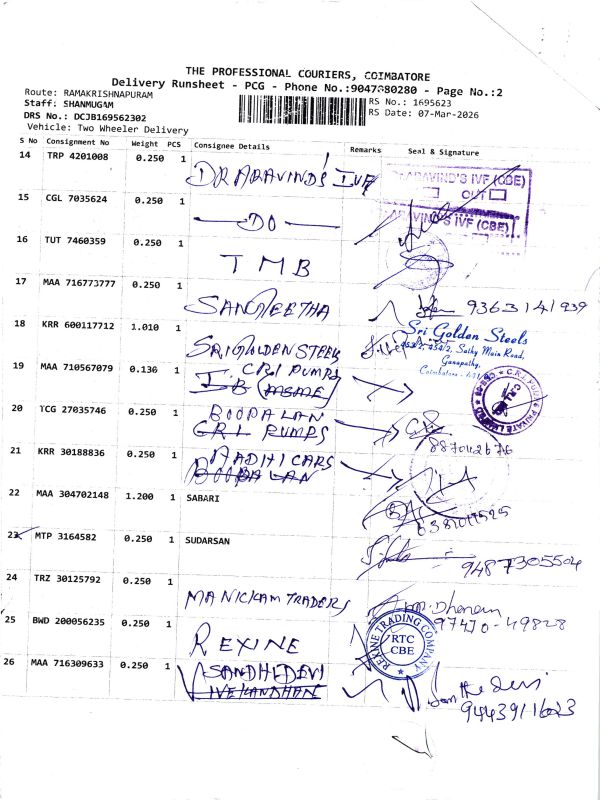 THE PROFESSIONAL COURIERS, COIMBATORE
Delivery Runsheet - PCG - Phone No.:9047880280 - Page No.:2
Route: RAMAKRISHNAPURAM
Staff: SHANMUGAM
DRS No.: DCJB169562302
Vehicle: Two Wheeler Delivery
RS No.: 1695623
RS Date: 07-Mar-2026
S No Consignment No Weight PCS Consignee Details Remarks Seal & Signature
14 TRP 4201008 0.250 1 DR ARAVIND'S IVF
ARAVIND'S IVF (CBE)
OUT
15 CGL 7035624 0.250 1 DO
ARAVIND'S IVF (CBE)
16 TUT 7460359 0.250 1 TMB
17 MAA 716773777 0.250 1 SANGEETHA 9363141939
18 KRR 600117712 1.010 1 SRI GOLDEN STEELS
Sri Golden Steels
Sathy Main Road,
Ganapathy,
Coimbatore
19 MAA 710567079 0.130 1 C.R.I PUMPS
I.B (MSME)
20 TCG 27035746 0.250 1 BOOPALAN
C.R.I. PUMPS
8870426716
21 KRR 30188836 0.250 1 AADHI CARS
BOOPALAN
22 MAA 304702148 1.200 1 SABARI
6381011525
23 MTP 3164582 0.250 1 SUDARSAN 9487305504
24 TRZ 30125792 0.250 1 MANICKAM TRADERS
97410-49828
25 BWD 200056235 0.250 1 REXINE
REXINE TRADING COMPANY
RTC
CBE
26 MAA 716309633 0.250 1 SANDHIDEVI
VIVEKANDHAN
9443911623